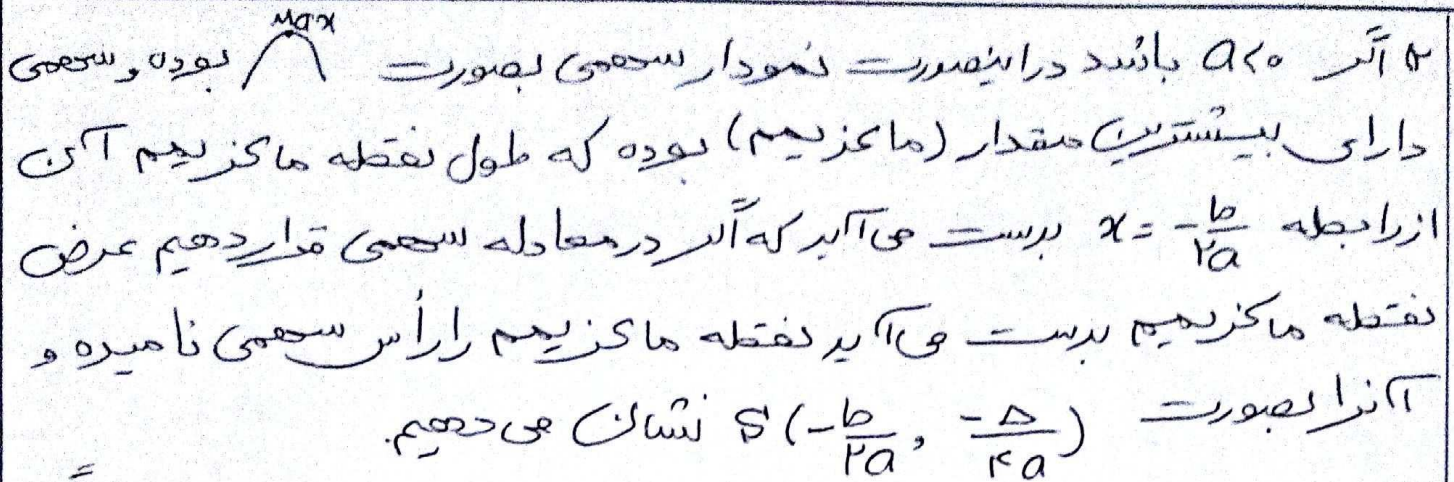 Max
۲) اگر a<۰ باشد در اینصورت نمودار سهمی بصورت ⋂ بوده و سهمی
دارای بیشترین مقدار (ماکزیمم) بوده که طول نقطه ماکزیمم آن
از رابطه x = -b/۲a بدست می‌آید که اگر در معادله سهمی قرار دهیم عرض
نقطه ماکزیمم بدست می‌آید نقطه ماکزیمم را رأس سهمی نامیده و
آنرا بصورت S(-b/۲a , -Δ/۴a) نشان می‌دهیم.